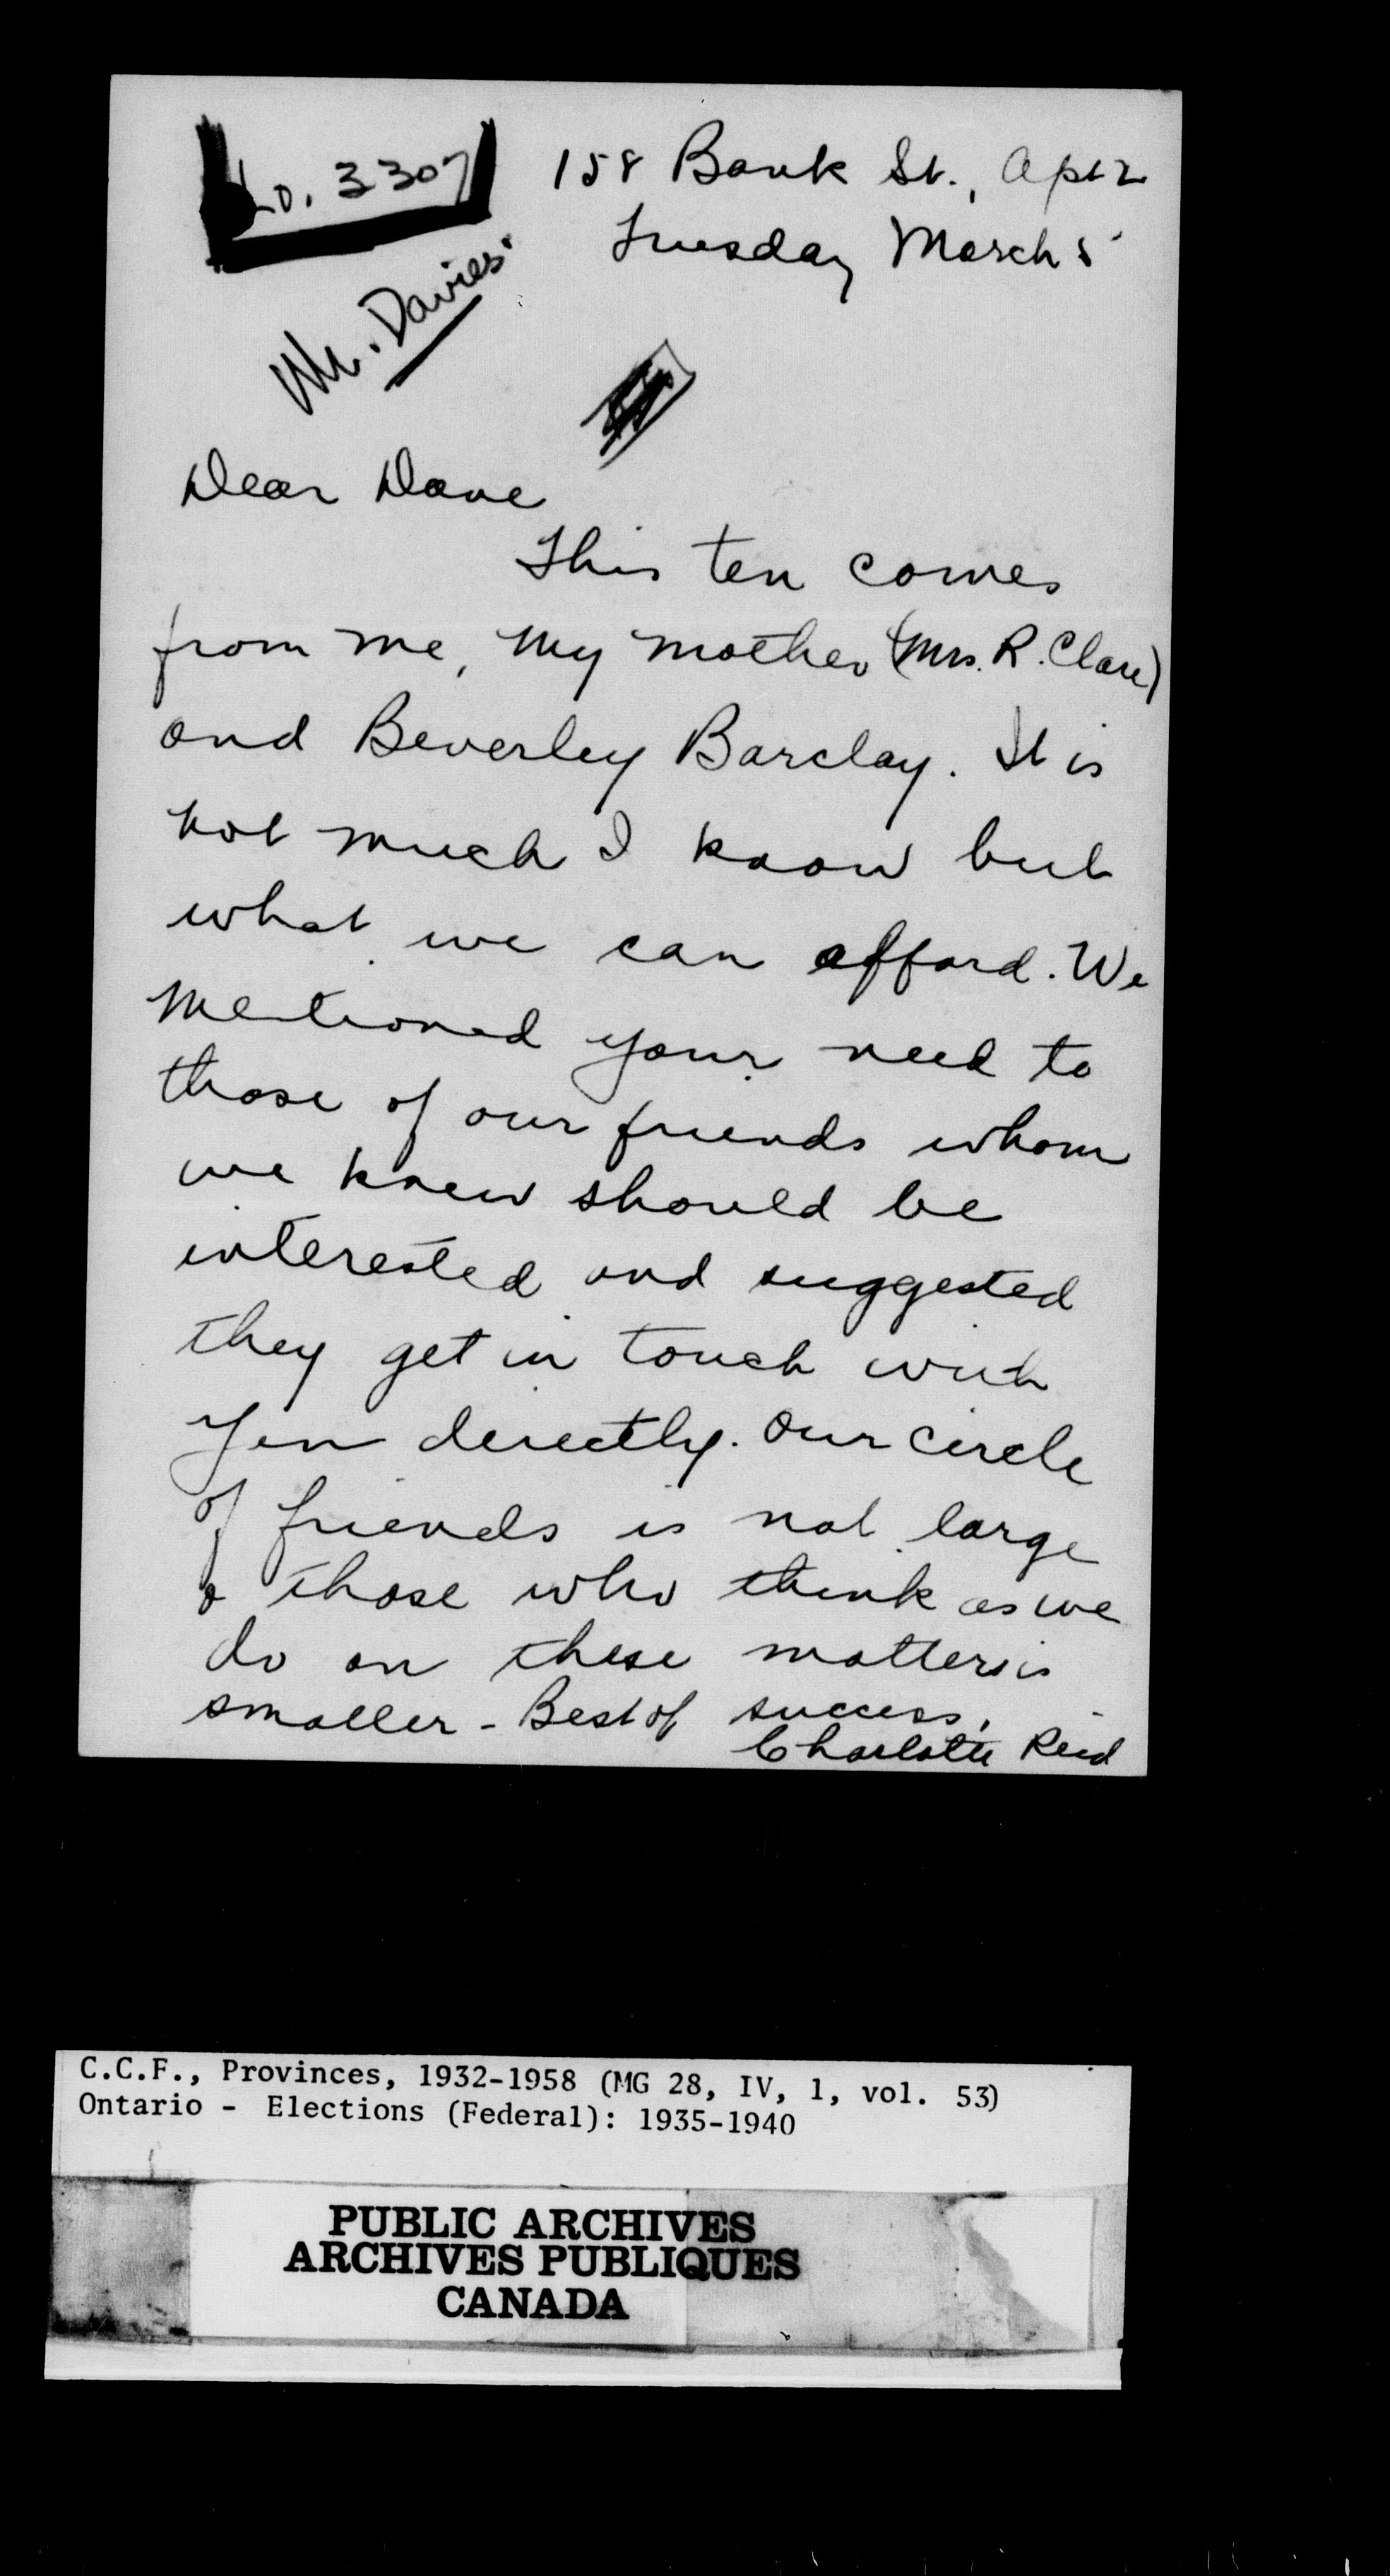 No. 3307
158 Bank St., Apt 2
Tuesday March 5
Mr. Davies.
Dear Dave
This ten comes
from me, my mother (Mrs. R. Clare)
and Beverley Barclay. It is
not much I know but
what we can afford. We
mentioned your need to
those of our friends whom
we knew should be
interested and suggested
they get in touch with
you directly. Our circle
of friends is not large
& those who think as we
do on these matters is
smaller - Best of success,
Charlotte Reid
C.C.F., Provinces, 1932-1958 (MG 28, IV, 1, vol. 53)
Ontario - Elections (Federal): 1935-1940
PUBLIC ARCHIVES
ARCHIVES PUBLIQUES
CANADA